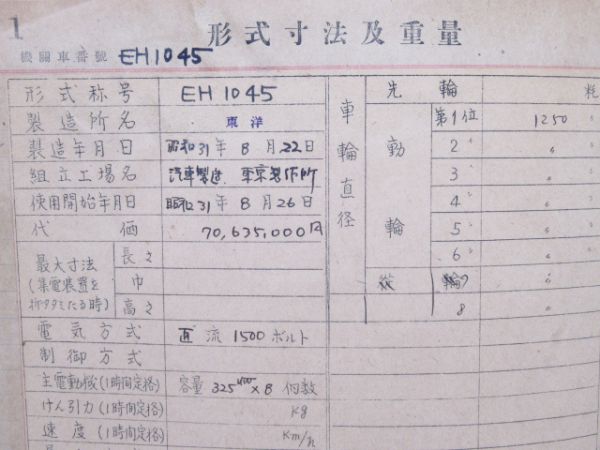 1
形式寸法及重量
機關車番號 EH1045
形式称号 EH1045 先輪 粍
製造所名 東洋 車輪直径 動輪 第1位 1250 〃
製造年月日 昭和31年8月22日 2〃 〃
組立工場名 汽車製造 東京製作所 3〃 〃
使用開始年月日 昭和31年8月26日 4〃 〃
代価 70,635,000円 5〃 〃
最大寸法(集電装置を折タタミたる時) 長さ 6〃 〃
巾 従輪 7 〃
高さ 8 〃
電気方式 直流1500ボルト
制御方式
主電動機(1時間定格) 容量325KW×8個数
けん引力(1時間定格) kg
速度(1時間定格) km/h